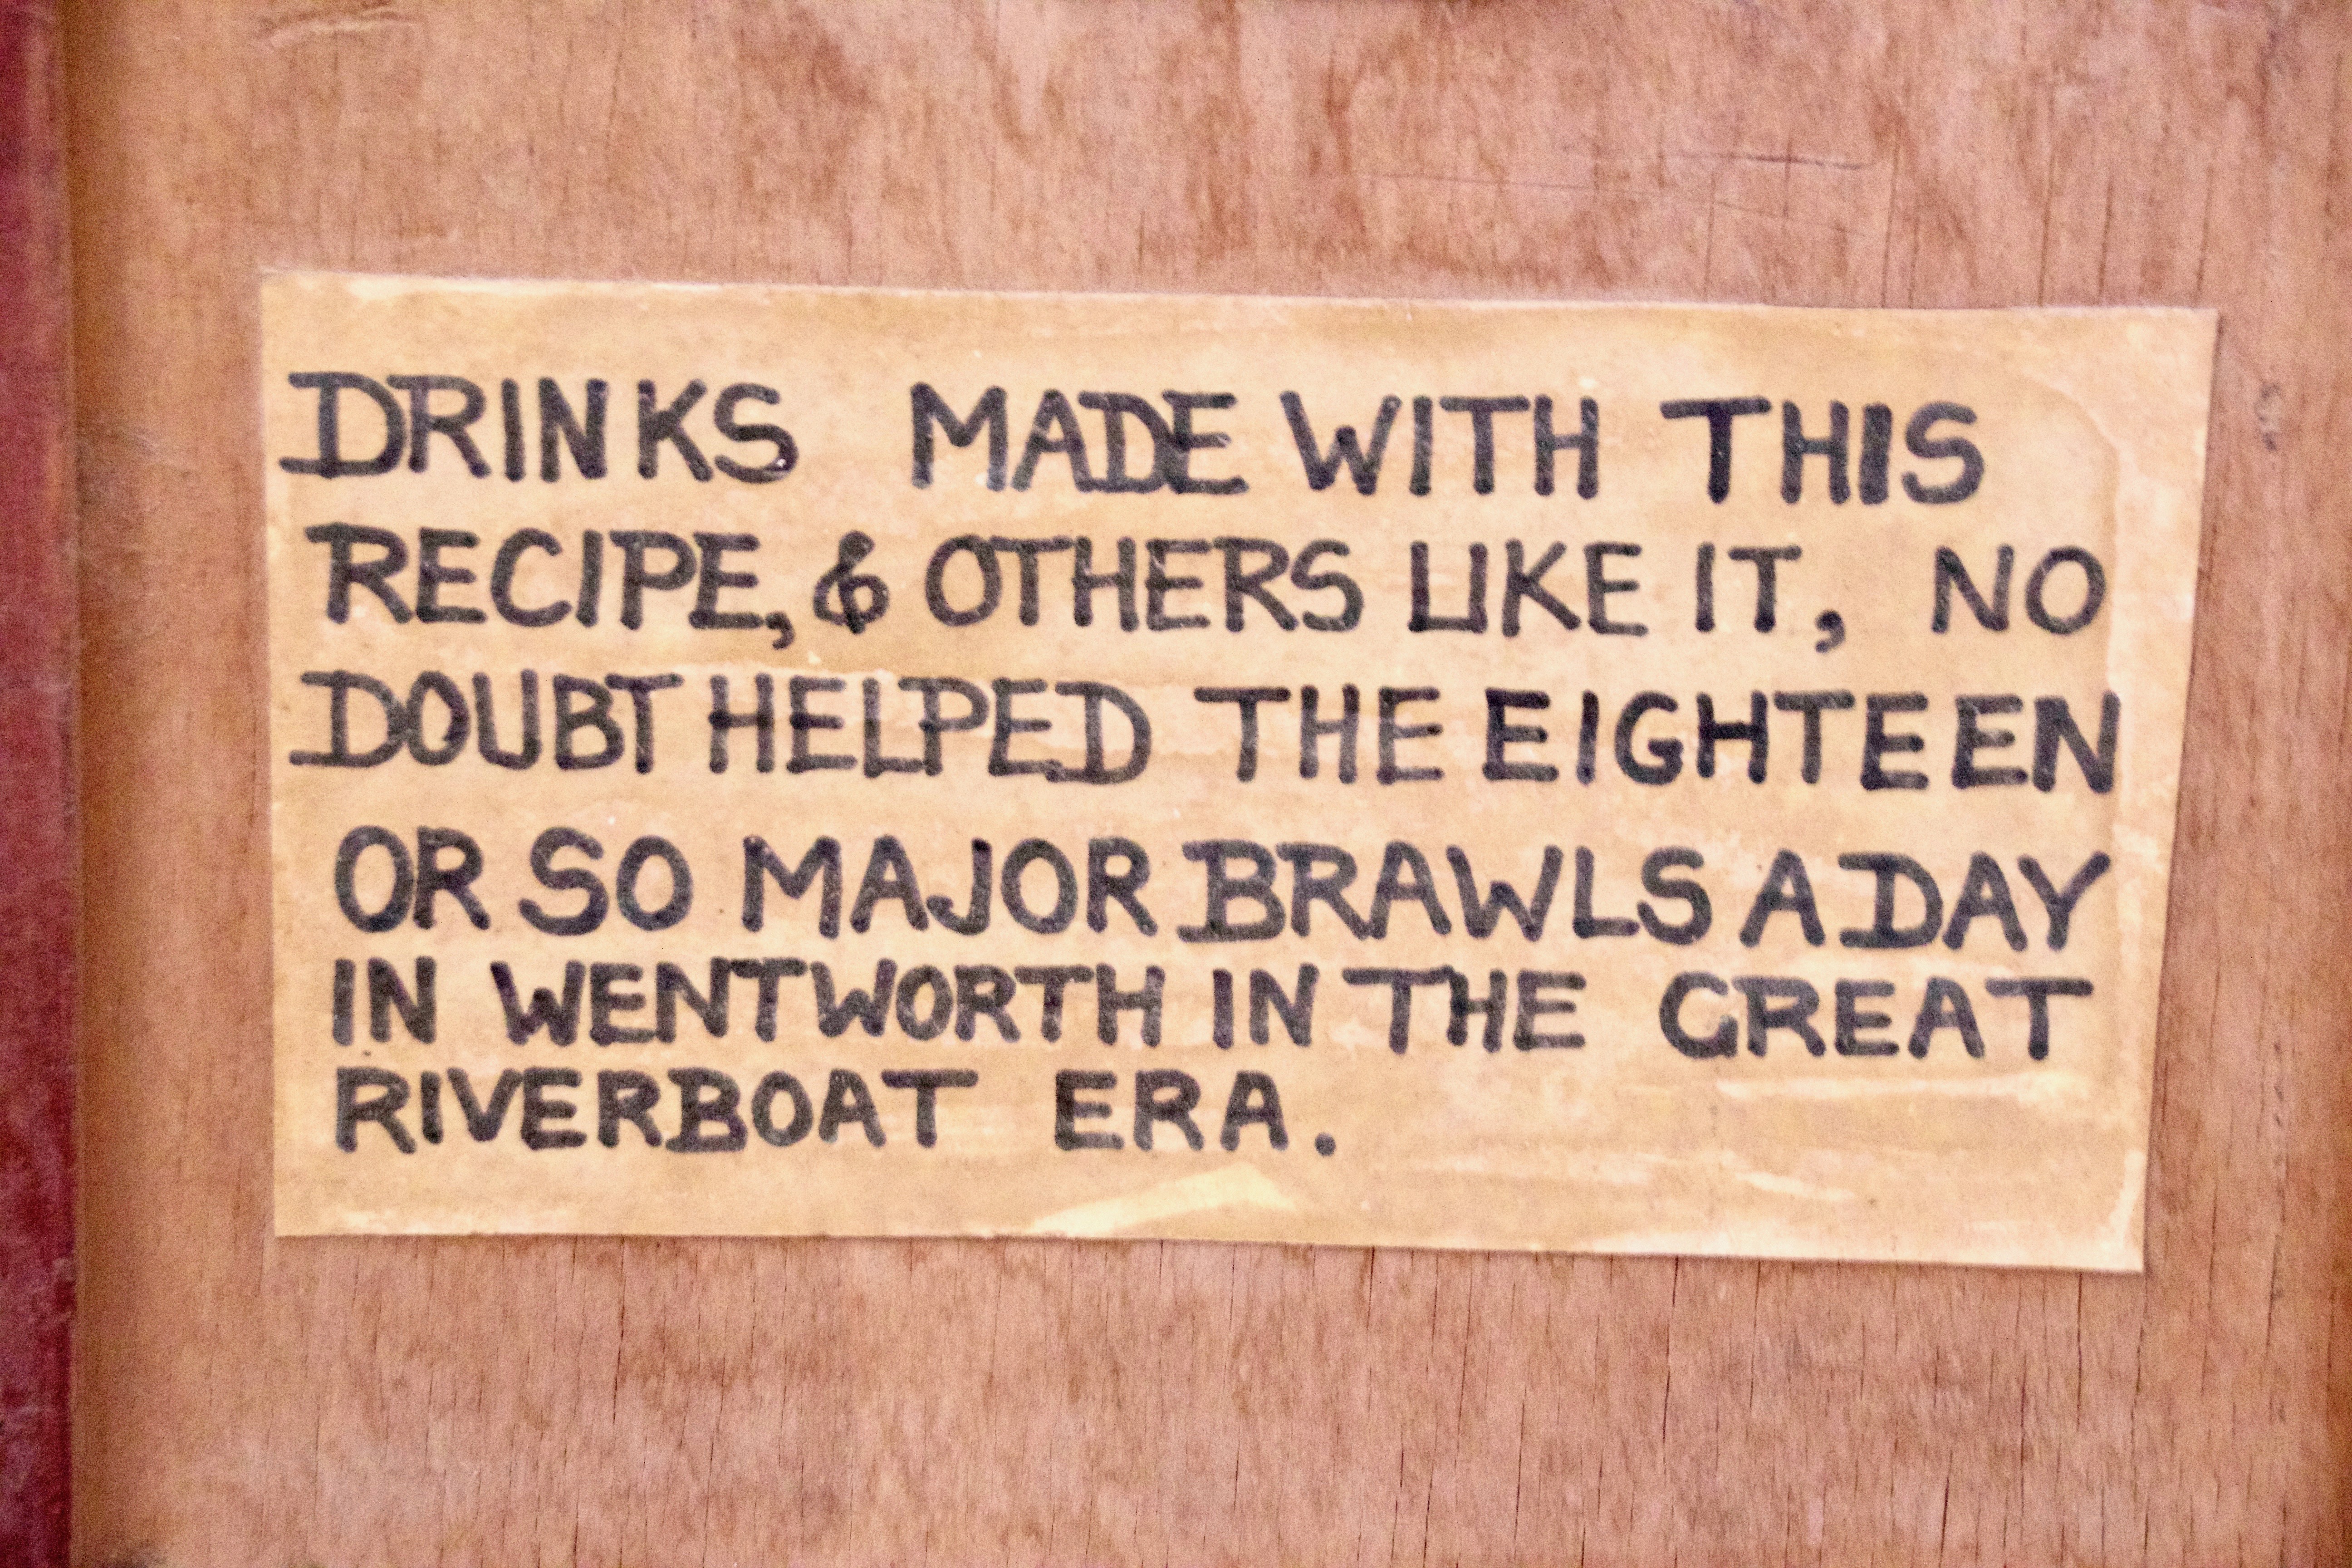 DRINKS MADE WITH THIS
RECIPE, & OTHERS LIKE IT, NO
DOUBT HELPED THE EIGHTEEN
OR SO MAJOR BRAWLS A DAY
IN WENTWORTH IN THE GREAT
RIVERBOAT ERA.